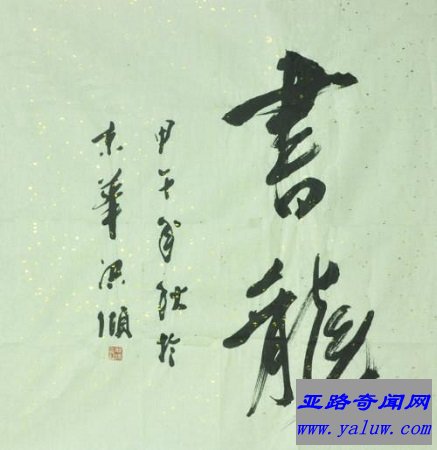 書龍
甲午年秋於
京華洪順
亚路奇闻网
www.yaluw.com